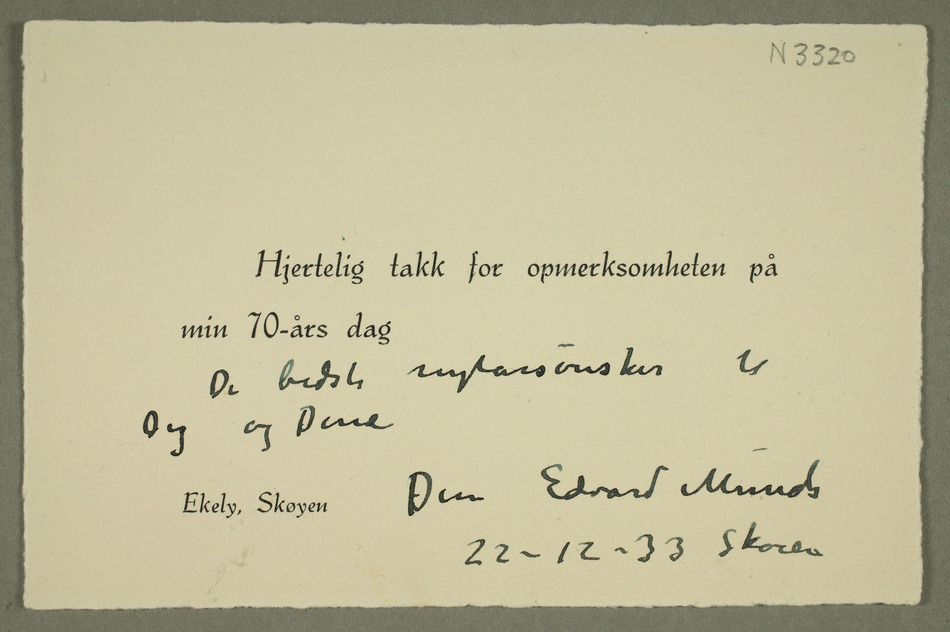 N 3320
Hjertelig takk for opmerksomheten på
min 70-års dag
De bedste nytårsønsker til
Dig og Dine
Ekely, Skøyen Din Edvard Munch
22-12-33 Skøien